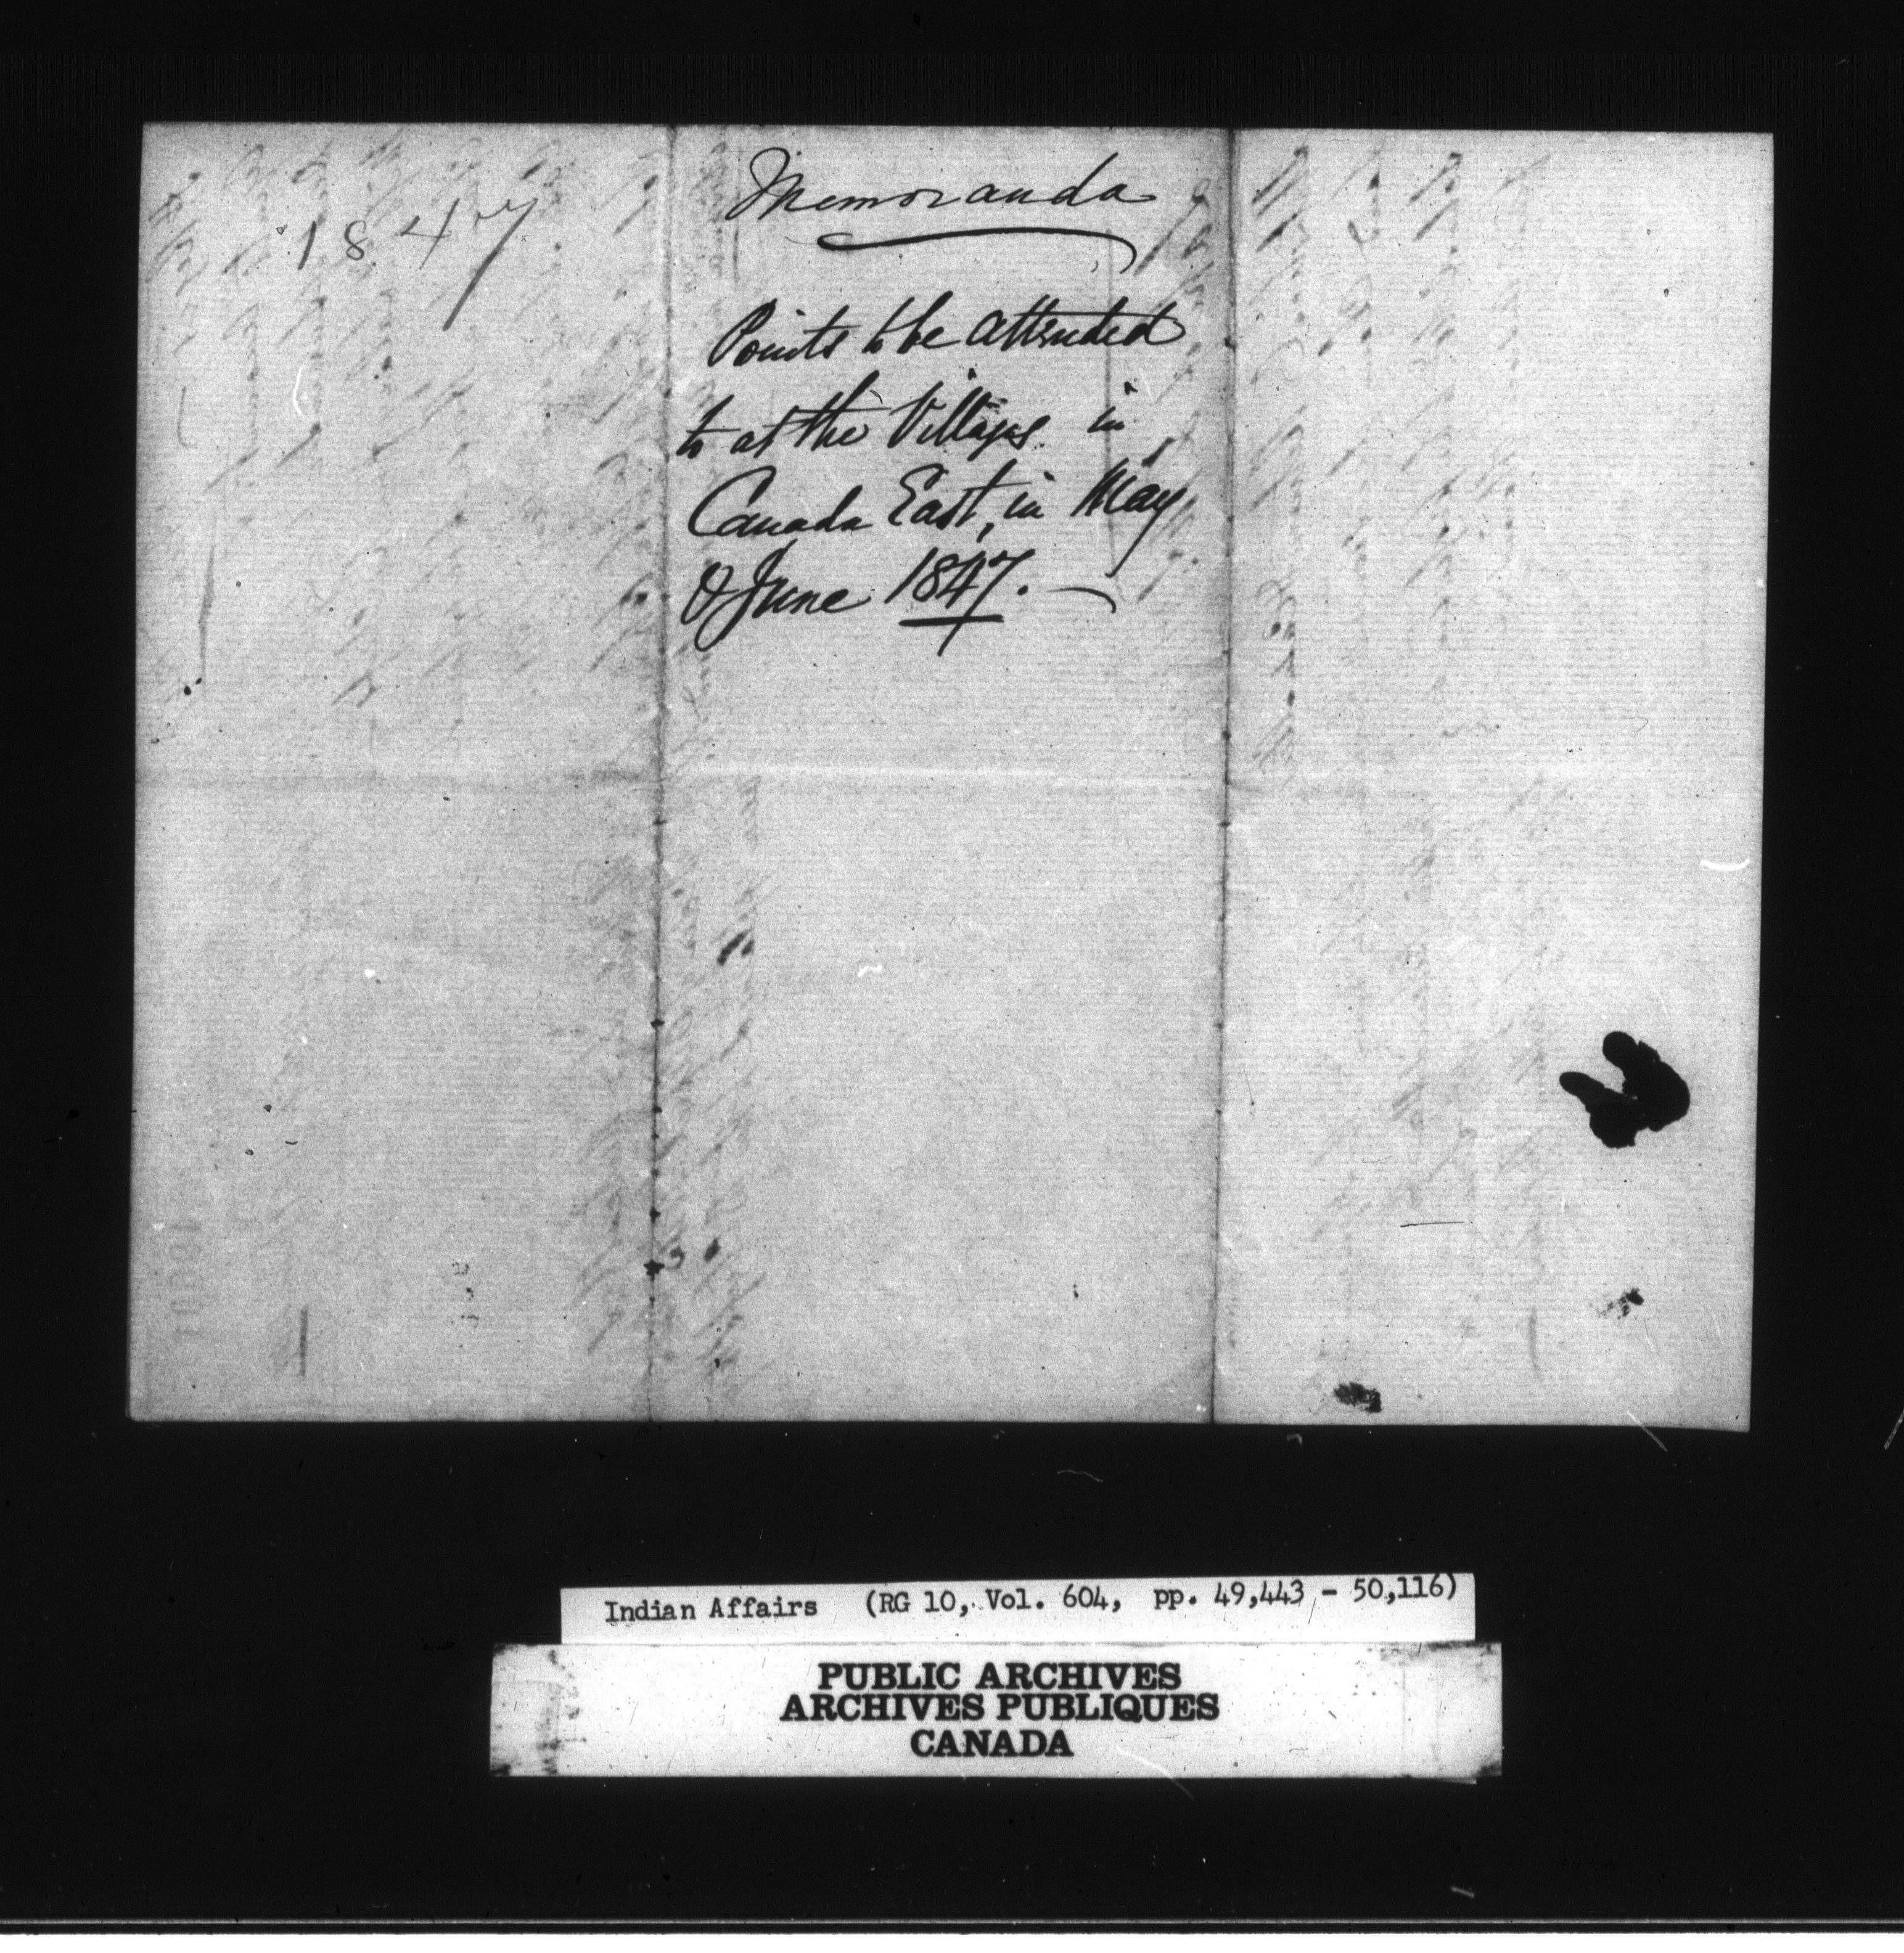 1847
Memoranda
Points to be attended
to at the Villages in
Canada East, in May
& June 1847. —
Indian Affairs (RG 10, Vol. 604, pp. 49,443 - 50,116)
PUBLIC ARCHIVES
ARCHIVES PUBLIQUES
CANADA